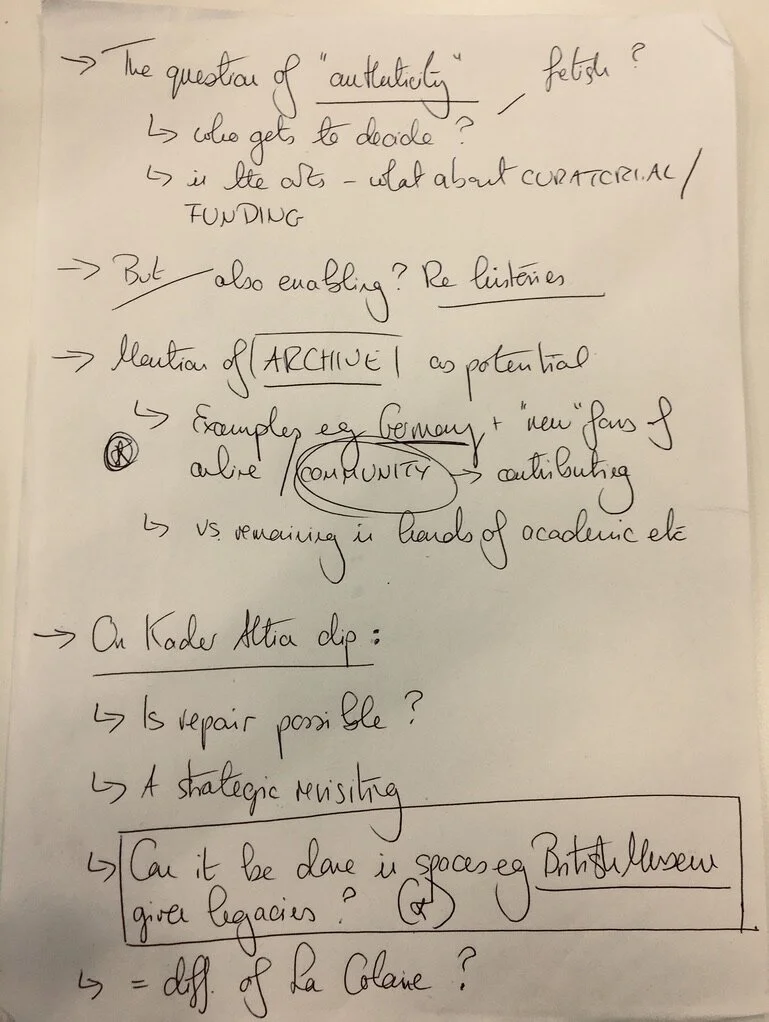 → The question of "authenticity" / fetish ?
↳ who gets to decide ?
↳ in the arts – what about CURATORIAL /
FUNDING
→ But also enabling? Re histories
→ Mention of | ARCHIVE | as potential
↳ Examples eg Germany + "new" fans of
/ COMMUNITY → contributing
↳ vs. remaining in hands of academic etc
→ On Kader Attia clip :
↳ Is repair possible ?
↳ A strategic revisiting
↳ Can it be done in spaces eg British Museum
given legacies ? (*)
↳ = diff. of La Colonie ?